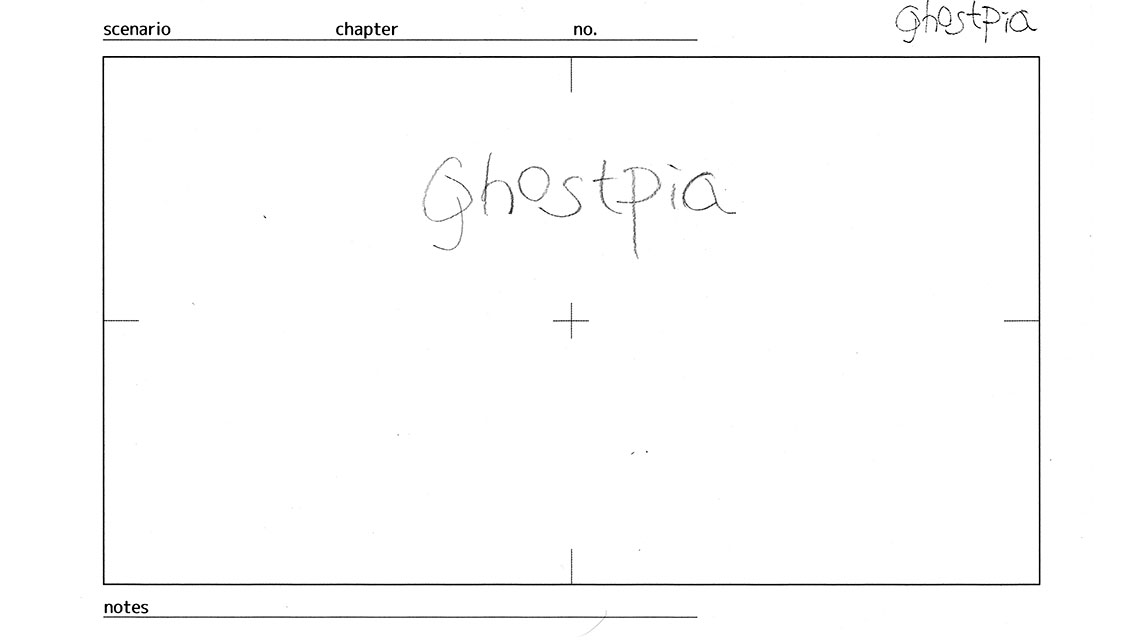 scenario chapter no. ghostpia
ghostpia
notes